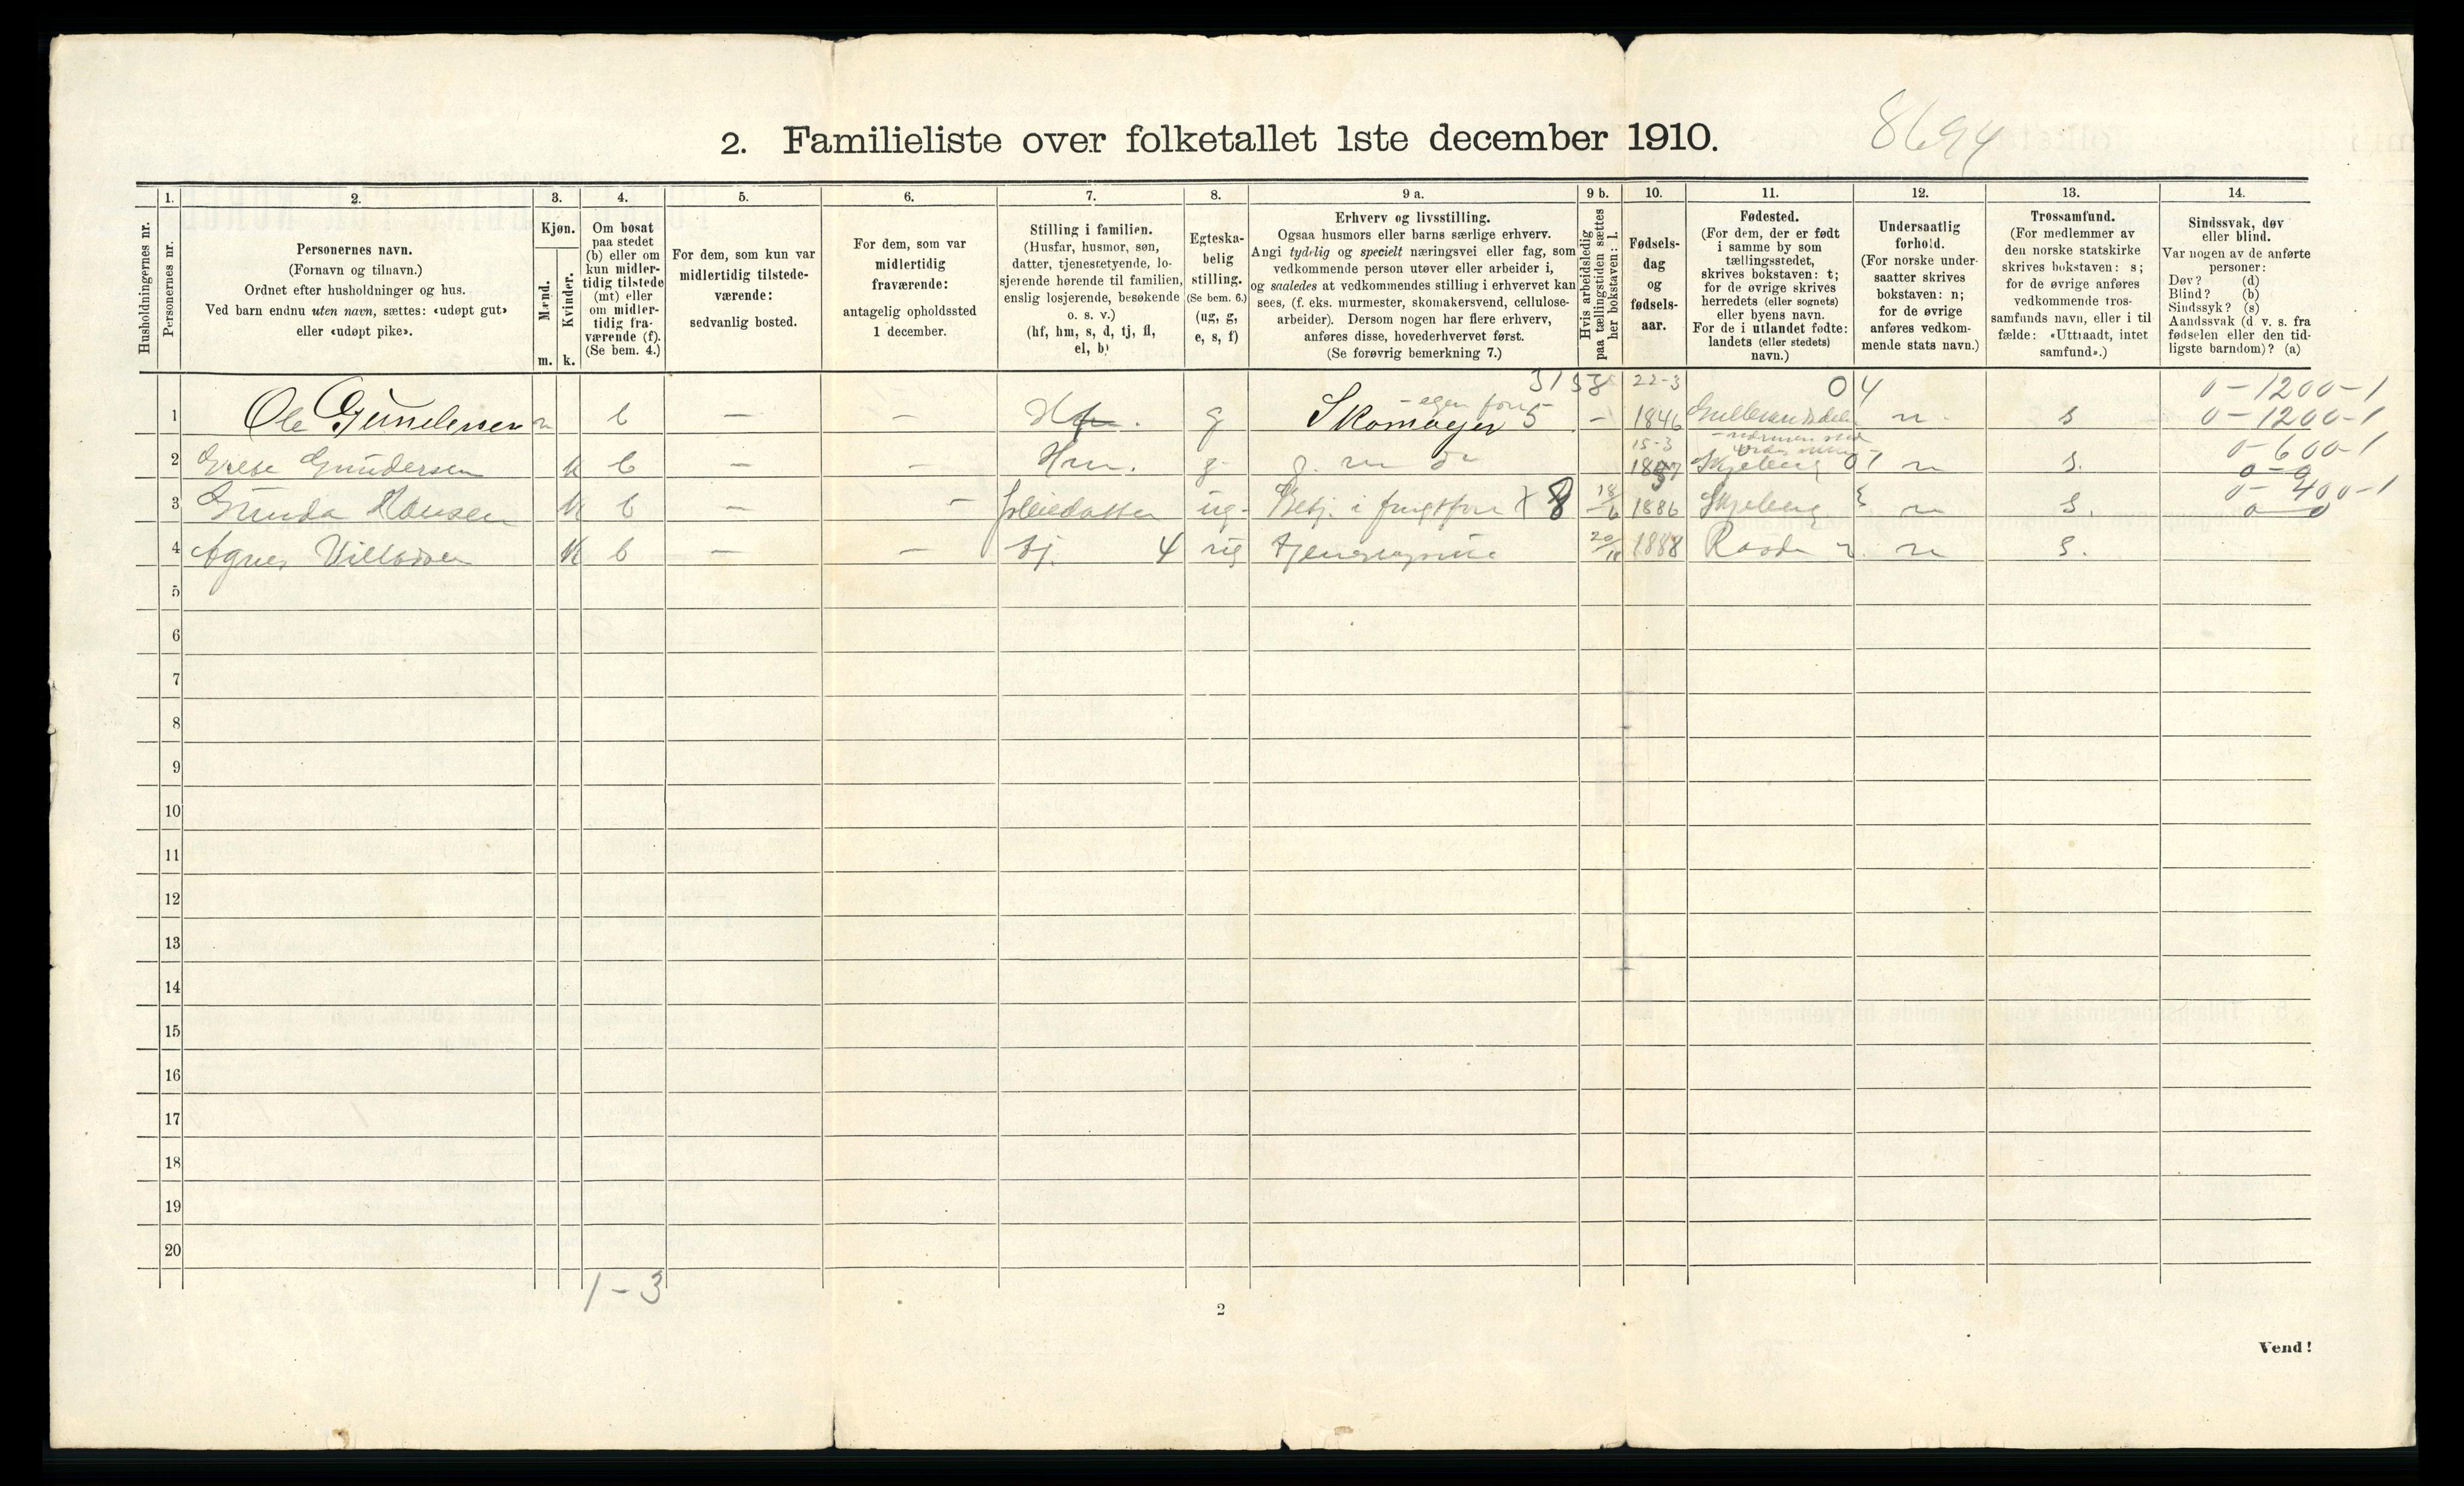 8694
2. Familieliste over folketallet 1ste december 1910.
Husholdningernes nr.
1.
Personernes nr.
2.
Personernes navn.
(Fornavn og tilnavn.)
Ordnet efter husholdninger og hus.
Ved barn endnu uten navn, sættes: «udøpt gut»
eller «udøpt pike».
3.
Kjøn.
Mænd.
Kvinder.
m. k.
4.
Om bosat
paa stedet
(b) eller om
kun midler-
tidig tilstede
(mt) eller
om midler-
tidig fra-
værende (f).
(Se bem. 4.)
5.
For dem, som kun var
midlertidig tilstede-
værende:
sedvanlig bosted.
6.
For dem, som var
midlertidig
fraværende:
antagelig opholdssted
1 december.
7.
Stilling i familien.
(Husfar, husmor, søn,
datter, tjenestetyende, lo-
sjerende hørende til familien,
enslig losjerende, besøkende
o. s. v.)
(hf, hm, s, d, tj, fl,
el, b)
8.
Egteska-
belig
stilling.
(Se bem. 6.)
(ug, g,
e, s, f)
9 a.
Erhverv og livsstilling.
Ogsaa husmors eller barns særlige erhverv.
Angi tydelig og specielt næringsvei eller fag, som
vedkommende person utøver eller arbeider i,
og saaledes at vedkommendes stilling i erhvervet kan
sees, (f. eks. murmester, skomakersvend, cellulose-
arbeider). Dersom nogen har flere erhverv,
anføres disse, hovederhvervet først.
(Se forøvrig bemerkning 7.)
9 b.
Hvis arbeidsledig
paa tællingstiden sættes
her bokstaven: l.
10.
Fødsels-
dag
og
fødsels-
aar.
11.
Fødested.
(For dem, der er født
i samme by som
tællingsstedet,
skrives bokstaven: t;
for de øvrige skrives
herredets (eller sognets)
eller byens navn.
For de i utlandet fødte:
landets (eller stedets)
navn.)
12.
Undersaatlig
forhold.
(For norske under-
saatter skrives
bokstaven: n;
for de øvrige
anføres vedkom-
mende stats navn.)
13.
Trossamfund.
(For medlemmer av
den norske statskirke
skrives bokstaven: s;
for de øvrige anføres
vedkommende tros-
samfunds navn, eller i til
fælde: «Uttraadt, intet
samfund».)
14.
Sindssvak, døv
eller blind.
Var nogen av de anførte
personer:
Døv? (d)
Blind? (b)
Sindssyk? (s)
Aandssvak (d v. s. fra
fødselen eller den tid-
ligste barndom)? (a)
22-3 04 0-1200-1
1 Ole Gundersen m b - - Hf. g Skomager 5 - 1846 n s 0-1200-1
15-3 0-600-1
2 Grete Gundersen k b - - Hm. g. Skjeberg 01 n s.
0-400-1
3 Gunda Hansen k b - - Pleiedatter ug. 8 18/6 1886 Skjeberg n s.
4 Agnes k b - - tj. 4 ug 1888 Raade n s.
5
6
7
8
9
10
11
12
13
14
15
16
17
18
19
20
1-3
2
Vend!